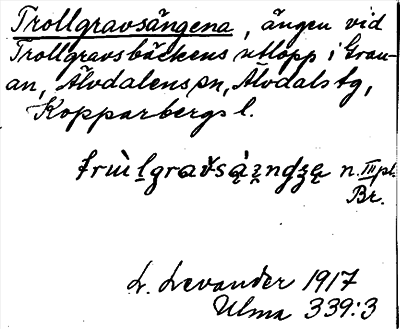 Trollgravsängena, ängen vid
Trollgravsbäckens utlopp i Grov-
an, Älvdalens sn, Älvdals tg,
Kopparbergs l.
n. III pl.
Br.
L. Levander 1917
Ulma 339:3